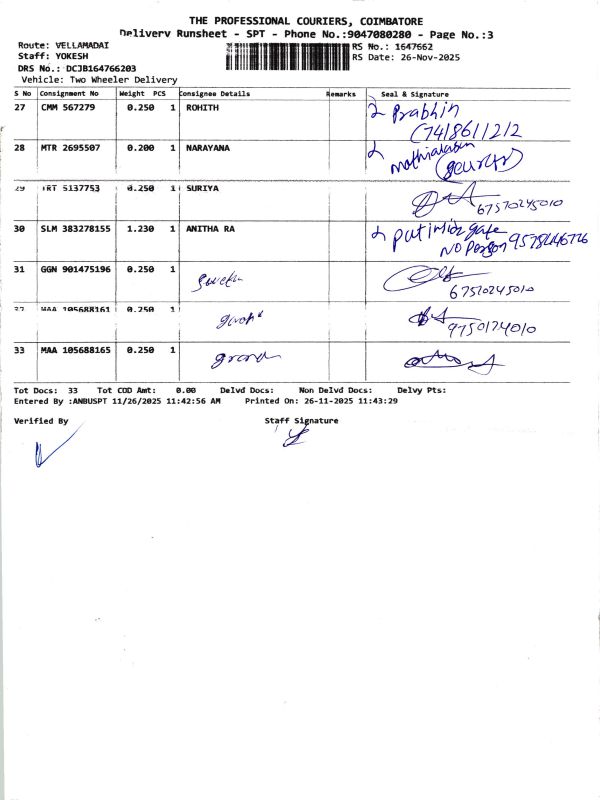 THE PROFESSIONAL COURIERS, COIMBATORE
Delivery Runsheet - SPT - Phone No.:9047080280 - Page No.:3
Route: VELLAMADAI
RS No.: 1647662
Staff: YOKESH
RS Date: 26-Nov-2025
DRS No.: DCJB164766203
Vehicle: Two Wheeler Delivery
S No Consignment No Weight PCS Consignee Details Remarks Seal & Signature
27 CMM 567279 0.250 1 ROHITH Prabhin
7418611212
28 MTR 2695507 0.200 1 NARAYANA
29 TRT 5137753 0.250 1 SURIYA
67570245010
30 SLM 383278155 1.230 1 ANITHA RA put inside gate
NO Person
31 GGN 901475196 0.250 1
67510245010
32 MAA 105688161 0.250 1
9750174010
33 MAA 105688165 0.250 1
Tot Docs: 33 Tot COD Amt: 0.00 Delvd Docs: Non Delvd Docs: Delvy Pts:
Entered By :ANBUSPT 11/26/2025 11:42:56 AM Printed On: 26-11-2025 11:43:29
Verified By Staff Signature